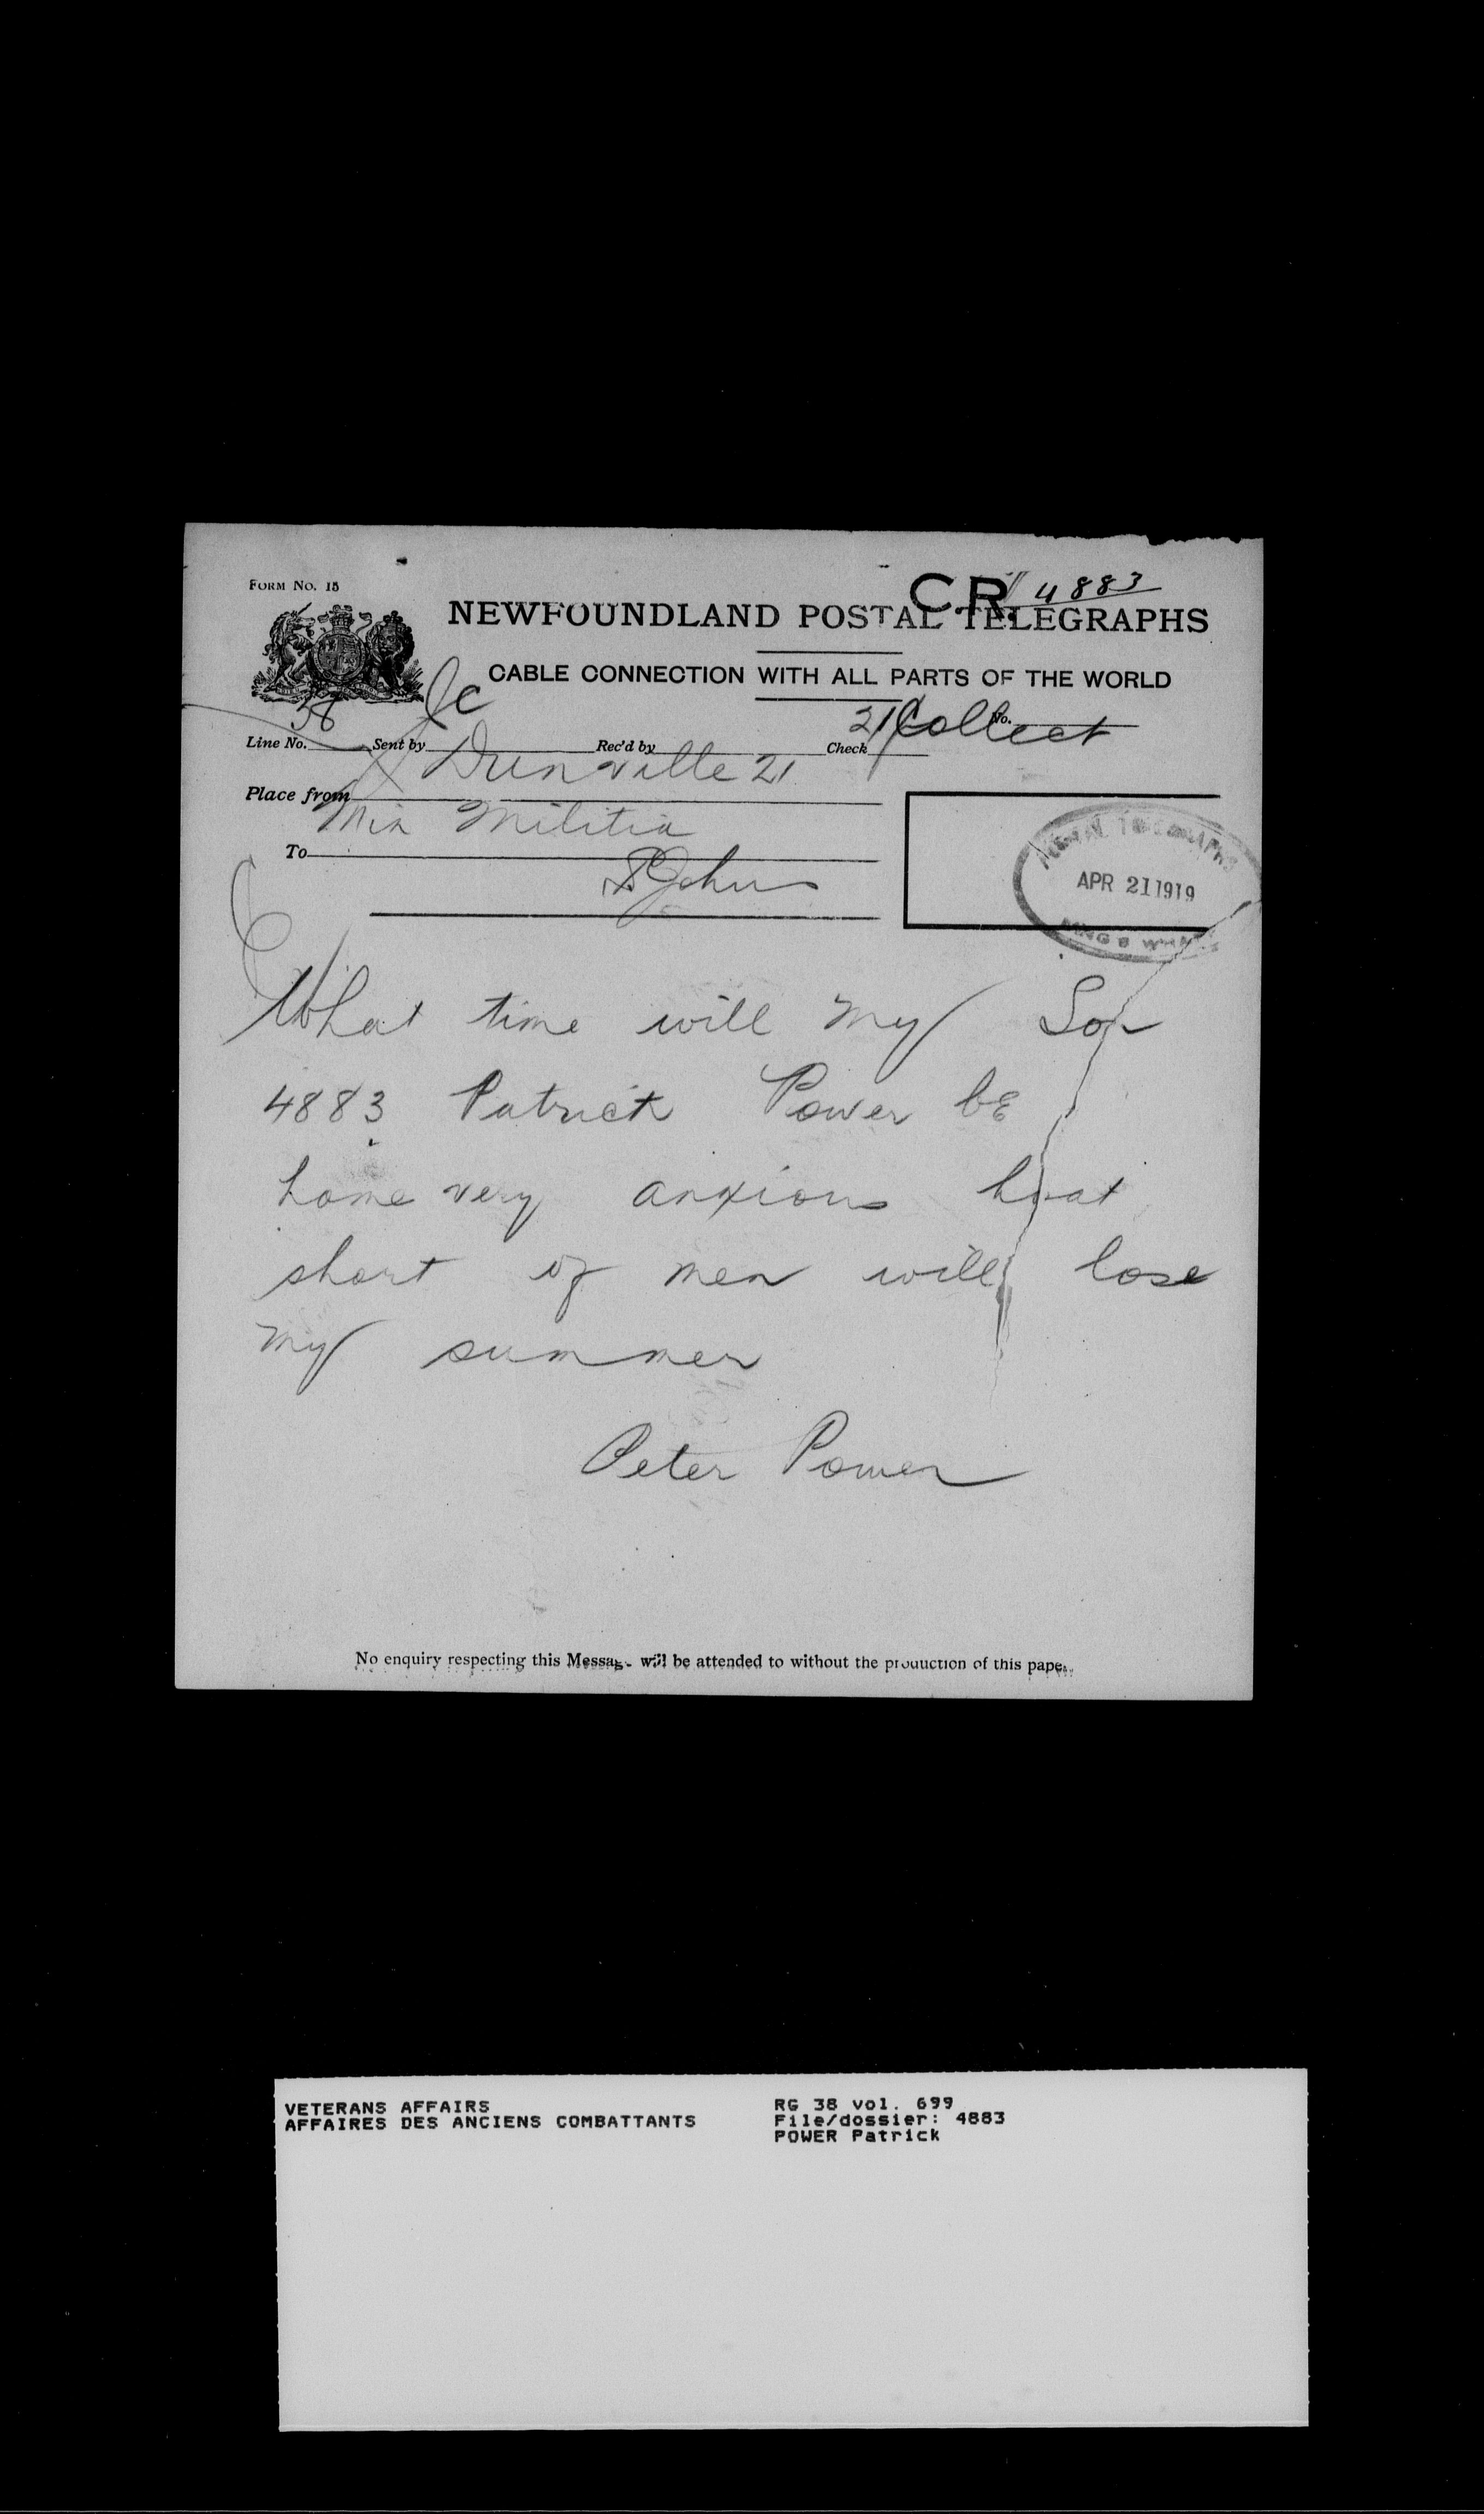 FORM NO. 15
C R. 4883
NEWFOUNDLAND POSTAL TELEGRAPHS
CABLE CONNECTION WITH ALL PARTS OF THE WORLD
Line No. 38 Sent by Jc Rec'd by Check 21 Collect No.
Place from Dunville 21
To Min Militia
St Johns
POSTAL TELEGRAPHS
APR 21 1919
KING'S WHARF
What time will my Son
4883 Patrick Power be
home very anxious
short of men will lose
my summer
Peter Power
No enquiry respecting this Message will be attended to without the production of this paper.
VETERANS AFFAIRS
AFFAIRES DES ANCIENS COMBATTANTS
RG 38 vol. 699
File/dossier: 4883
POWER Patrick